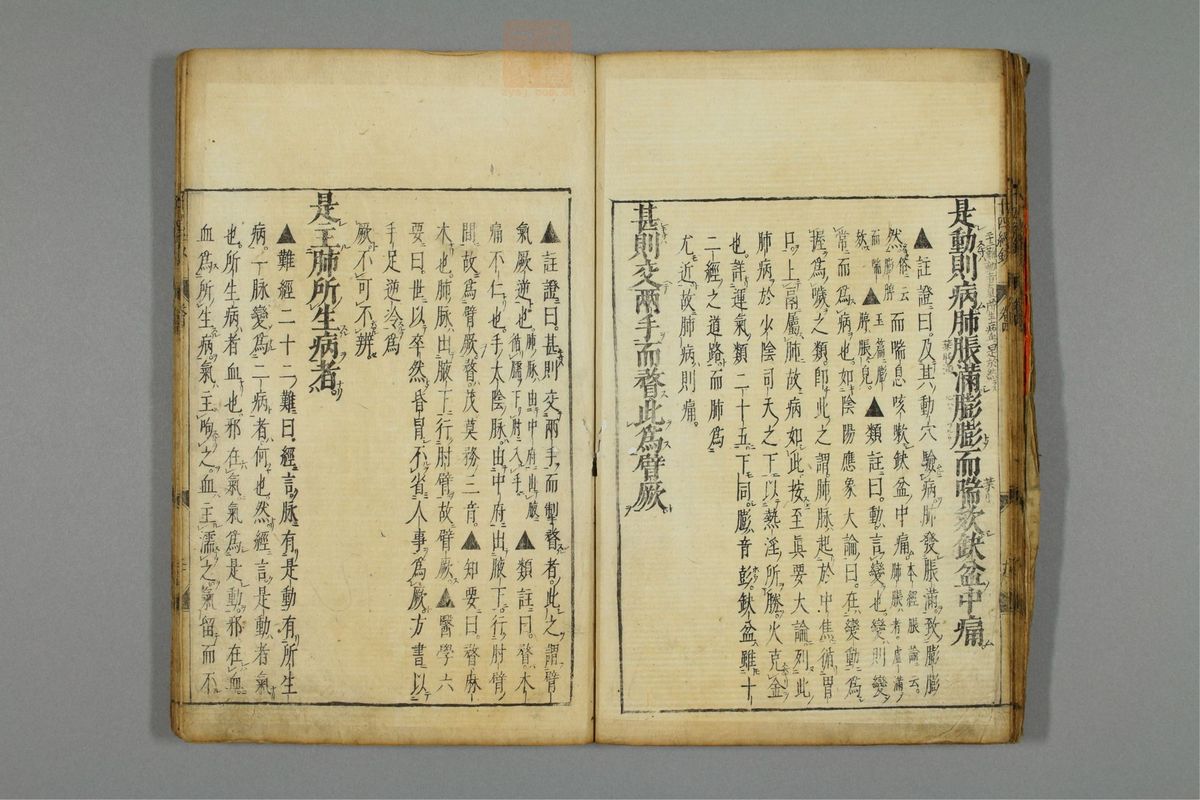 是動則病肺脹滿膨膨而喘欬缺盆中痛
▲註證曰及其動穴驗病肺發脹滿致膨膨
然而喘息咳嗽缺盆中痛本經脹論云肺脹者虛滿
而喘▲玉篇膨脝脹皃▲類註曰動言變也變則變
常而爲病也如陰陽應象大論曰在變動爲
握爲噦之類即此之謂肺脈起於中焦循胃
口上膈屬肺故病如此按至眞要大論列此
肺病於少陰司天之下以熱淫所勝火克金
也詳運氣類二十五下同膨音彭缺盆雖十
二經之道路而肺爲
尤近故肺病則痛
甚則交兩手而瞀此爲臂厥
▲註證曰甚則交兩手而掣瞀者此之謂臂
氣厥逆也肺脉由中府出腋循臑下肘入手▲類註曰瞀木
痛不仁也手太陰脉由中府出腋下行肘臂
間故爲臂厥瞀茂莫務二音▲知要曰瞀麻
木也肺脉出腋下行肘臂故臂厥▲醫學六
要曰世以卒然昏冒不省人事爲厥方書以
手足逆冷爲
厥不可不辨
是主肺所生病者
▲難經二十二難曰經言脉有是動有所生
病一脉變爲二病者何也然經言是動者氣
也所生病者血也邪在氣氣爲是動邪在血
血爲所生病氣主呴之血主濡之氣留而不